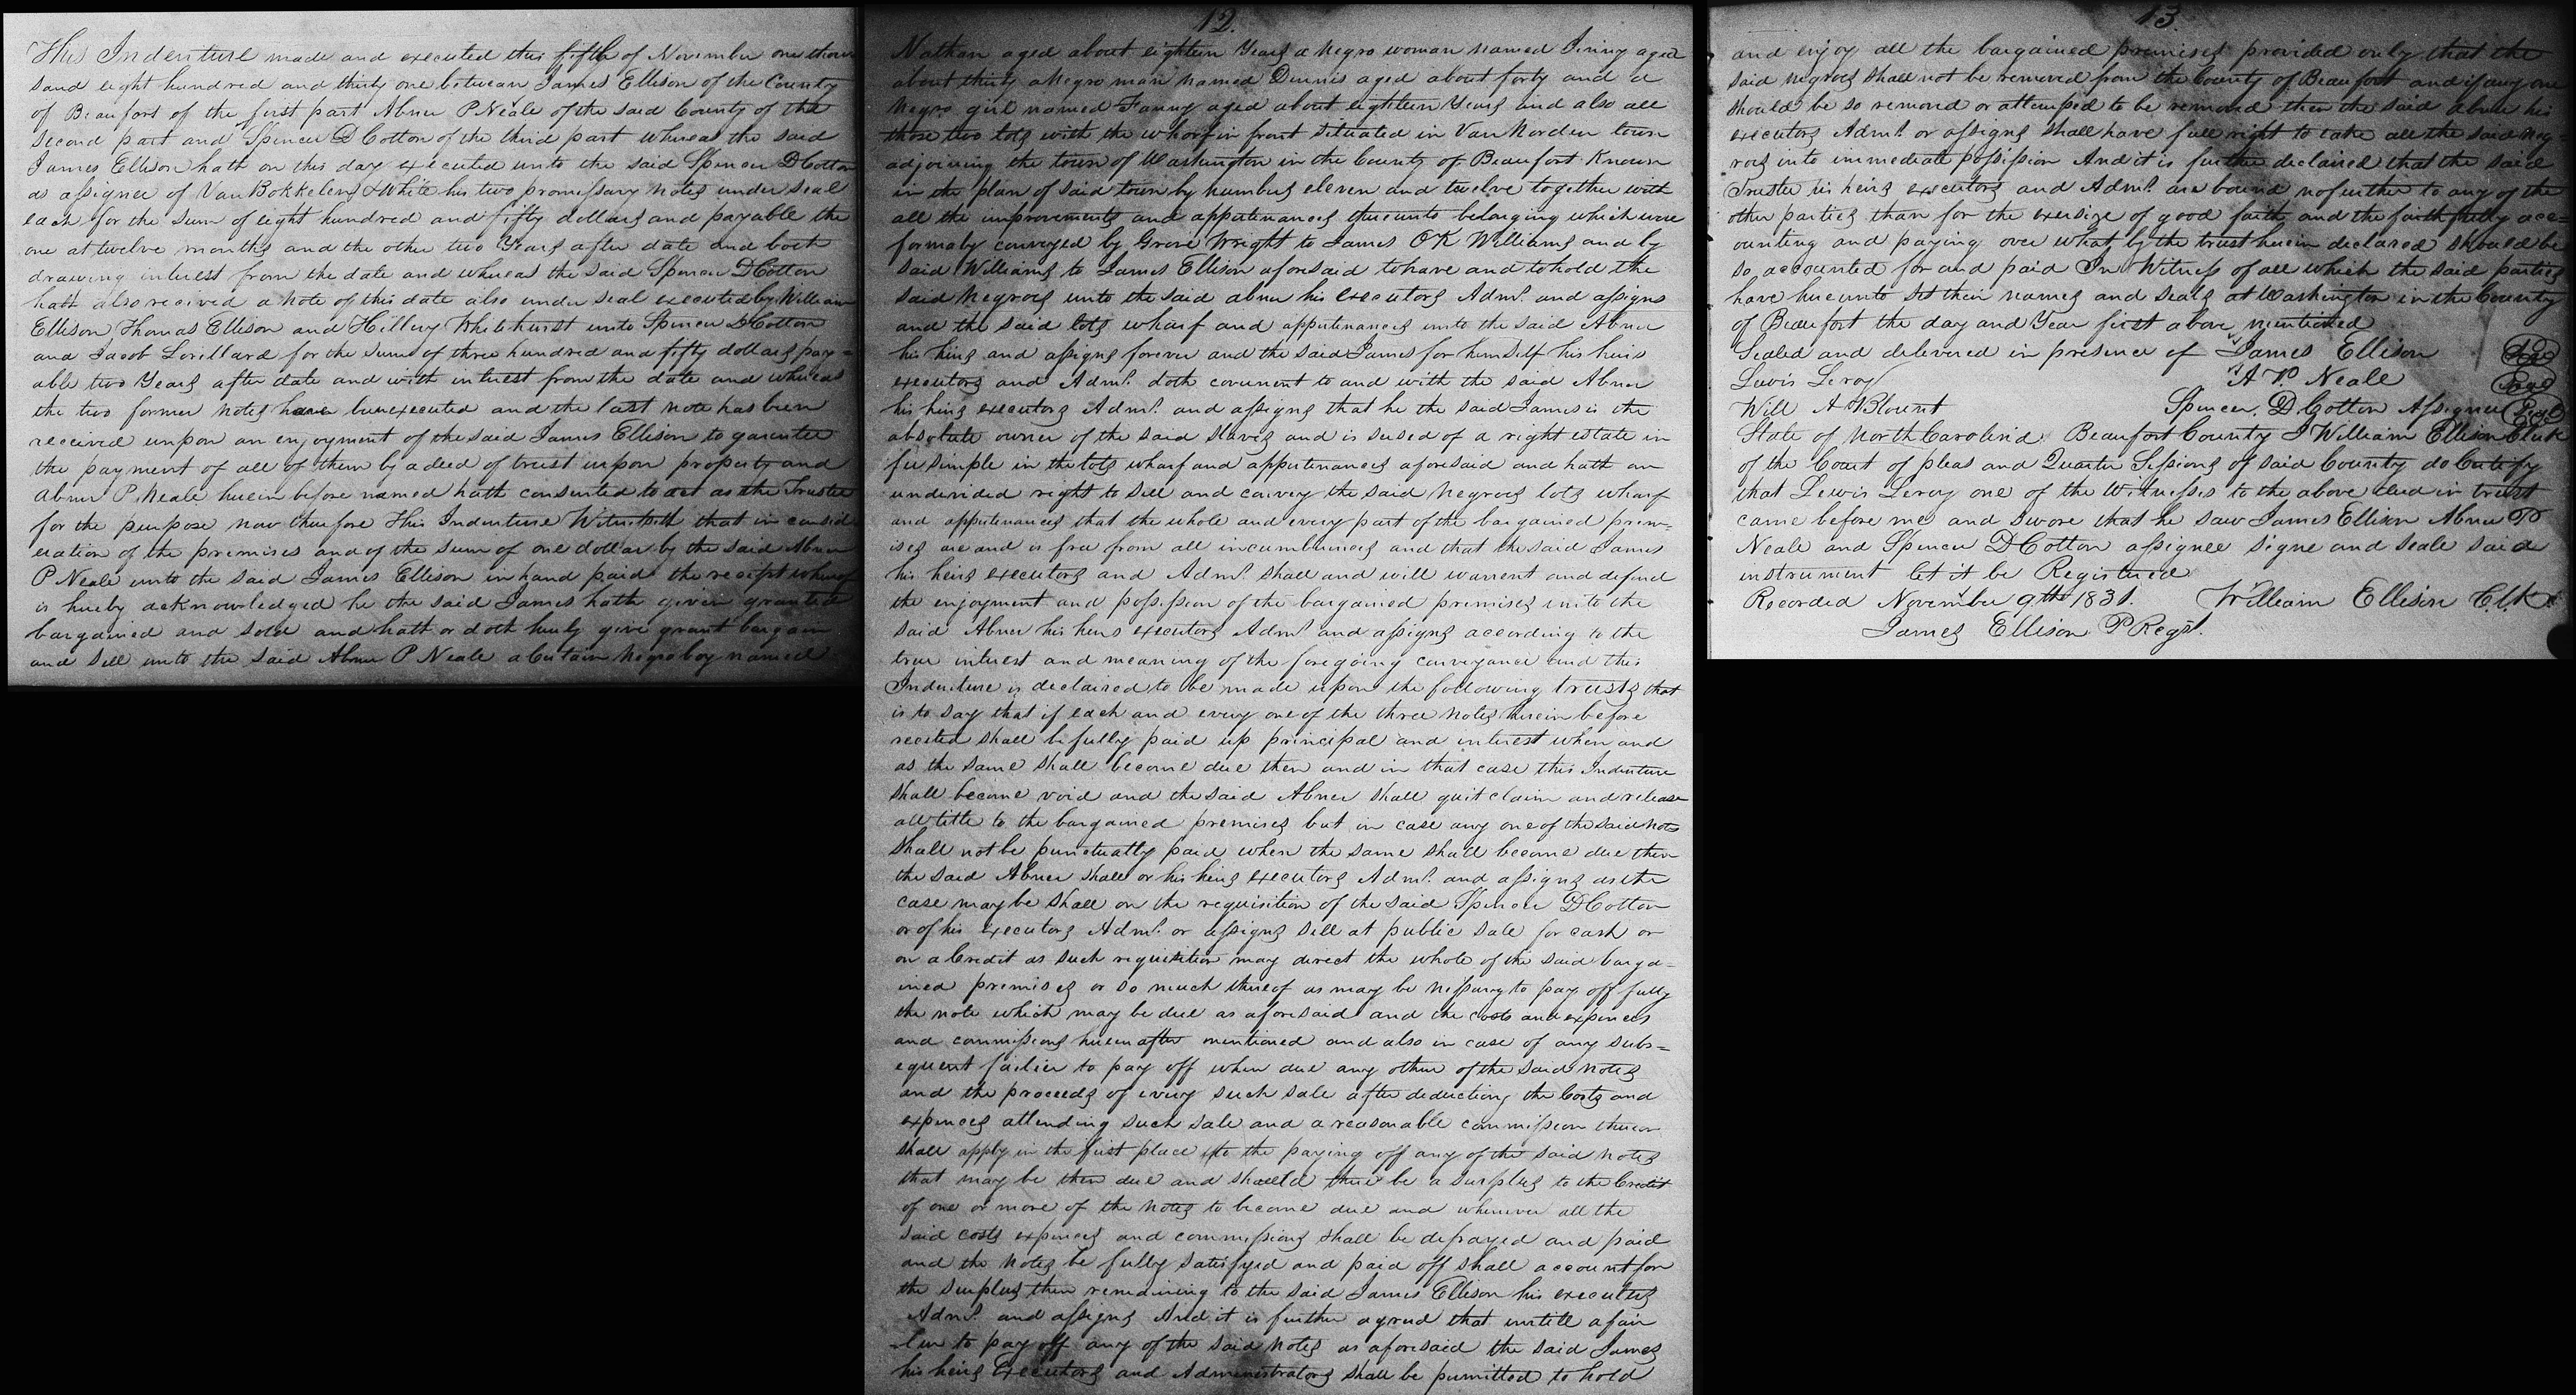 This Indenture made and executed this fifth of November one thou
sand eight hundred and thirty one between James Ellison of the County
of Beaufort of the first part Abner P Neale of the said County of the
second part and Spencer D Cotton of the third part whereas the said
James Ellison hath on this day executed unto the said Spencer D Cotton
as assignee of Van Bokkelen & White his two promissary notes under seal
each for the sum of eight hundred and fifty dollars and payable the
one at twelve months and the other two Years after date and both
drawing interest from the date and whereas the said Spencer D Cotton
hath also received a note of this date also under seal executed by William
Ellison Thomas Ellison and Hillery Whitehurst unto Spencer D Cotton
and Jacob Lorillard for the sum of three hundred and fifty dollars pay=
able two Years after date and with interest from the date and whereas
the two former notes have been executed and the last note has been
received unpon an enjoyment of the said James Ellison to garentee
the payment of all of them by a deed of trust unpon property and
Abner P Neale herein before named hath consented to act as the Trustee
for the purpose now therefore This Indenture Witnesseth that in consid
eration of the premises and of the sum of one dollar by the said Abner
P Neale unto the said James Ellison in hand paid the receipt whereof
is hereby acknowledged he the said James hath given granted
bargained and sold and hath or doth hereby give grant bargain
and sell unto the said Abner P Neale a Certain Negro boy named
12.
Nathan aged about eighteen Years a Negro woman named Jinny aged
about thirty a Negro man named Dennis aged about forty and a
Negro girl named Fanny aged about eighteen Years and also all
those two lots with the wharf in front situated in Van Norden town
adjoining the town of Washington in the County of Beaufort Known
in the plan of said town by numbers eleven and twelve together with
all the improvements and appertenances thereunto belonging which were
formaly conveyed by Grove Wright to James OK Williams and by
said Williams to James Ellison aforesaid to have and to hold the
said Negroes unto the said abner his executors Adms. and assigns
and the said lots wharf and appertenances unto the said Abner
his heirs and assigns forever and the said James for himself his heirs
executors and Adms. doth covenent to and with the said Abner
his heirs executors Adms. and assigns that he the said James is the
absolute owner of the said slaves and is seised of a right estate in
fee simple in the lots wharf and appertenances aforesaid and hath an
undivided right to sell and convey the said Negroes lots wharf
and appertenances that the whole and every part of the bargained prem=
ises are and is free from all incumbrances and that the said James
his heirs executors and Adms. shall and will warrent and defend
the enjoyment and possession of the bargained premises unto the
said Abner his heirs executors Adms. and assigns according to the
true interest and meaning of the foregoing conveyance and this
Indenture is declaired to be made upon the following trusts that
is to say that if each and every one of the three notes herein before
recited shall be fully paid up principal and interest when and
as the same shall become due then and in that case this Indenture
shall become void and the said Abner shall quit claim and release
all title to the bargained premises but in case any one of the said notes
shall not be punctually paid when the same shall become due then
the said Abner shall or his heirs executors Adms. and assigns as the
case may be shall on the requisition of the said Spencer D Cotton
or of his executors Adms. or assigns sell at public sale for cash or
on a Credit as such requisition may direct the whole of the said barga=
ined premises or so much thereof as may be nessary to pay off fully
the note which may be due as aforesaid and the costs and expences
and commissions hereinafter mentioned and also in case of any subs=
equent failier to pay off when due any other of the said notes
and the proceeds of every such sale after deducting the Costs and
expences attending such sale and a reasonable commission thereon
shall apply in the first place to the paying off any of the said notes
that may be then due and should there be a surplus to the Credit
of one or more of the notes to become due and whenever all the
said costs expences and commissions shall be defrayed and paid
and the notes be fully satisfyed and paid off shall account for
the surplus then remaining to the said James Ellison his executors
Adms. and assigns And it is further agreed that untill a fai
lier to pay off any of the said notes as aforesaid the said James
his heirs Executors and Administrators shall be permitted to hold
13
and enjoy all the bargained premises provided only that the
said negroes shall not be removed from the County of Beaufort and if any one
should be so removed or attemped to be removed then the said abner his
executors Adms. or assigns shall have full right to take all the said neg
roes into immediate possission And it is further declaired that the said
Trustee his heirs executors and Adms. are bound no further to any of the
other parties than for the exersize of good faith and the faithfully acc=
ounting and paying over what by the trust herein declared should be
so accounted for and paid In Witness of all which the said parties
have hereunto set their names and seals at Washington in the County
of Beaufort the day and Year first above mentioned
Sealed and delivered in presence of James Ellison Seal
Lewis Leroy A P Neale Seal
Will A Blount Spencer. D Cotton Assignee Seal
State of North Carolina Beaufort County I William Ellison Clerk
of the Court of pleas and Quarter Sessions of said County do Certify
that Lewis Leroy one of the Witnesses to the above deed in trust
came before me and swore that he saw James Ellison Abner P
Neale and Spencer D Cotton assignee signe and seale said
instrument let it be Registered
Recorded November 9th 1831. William Ellison Clk
James Ellison P Regst.